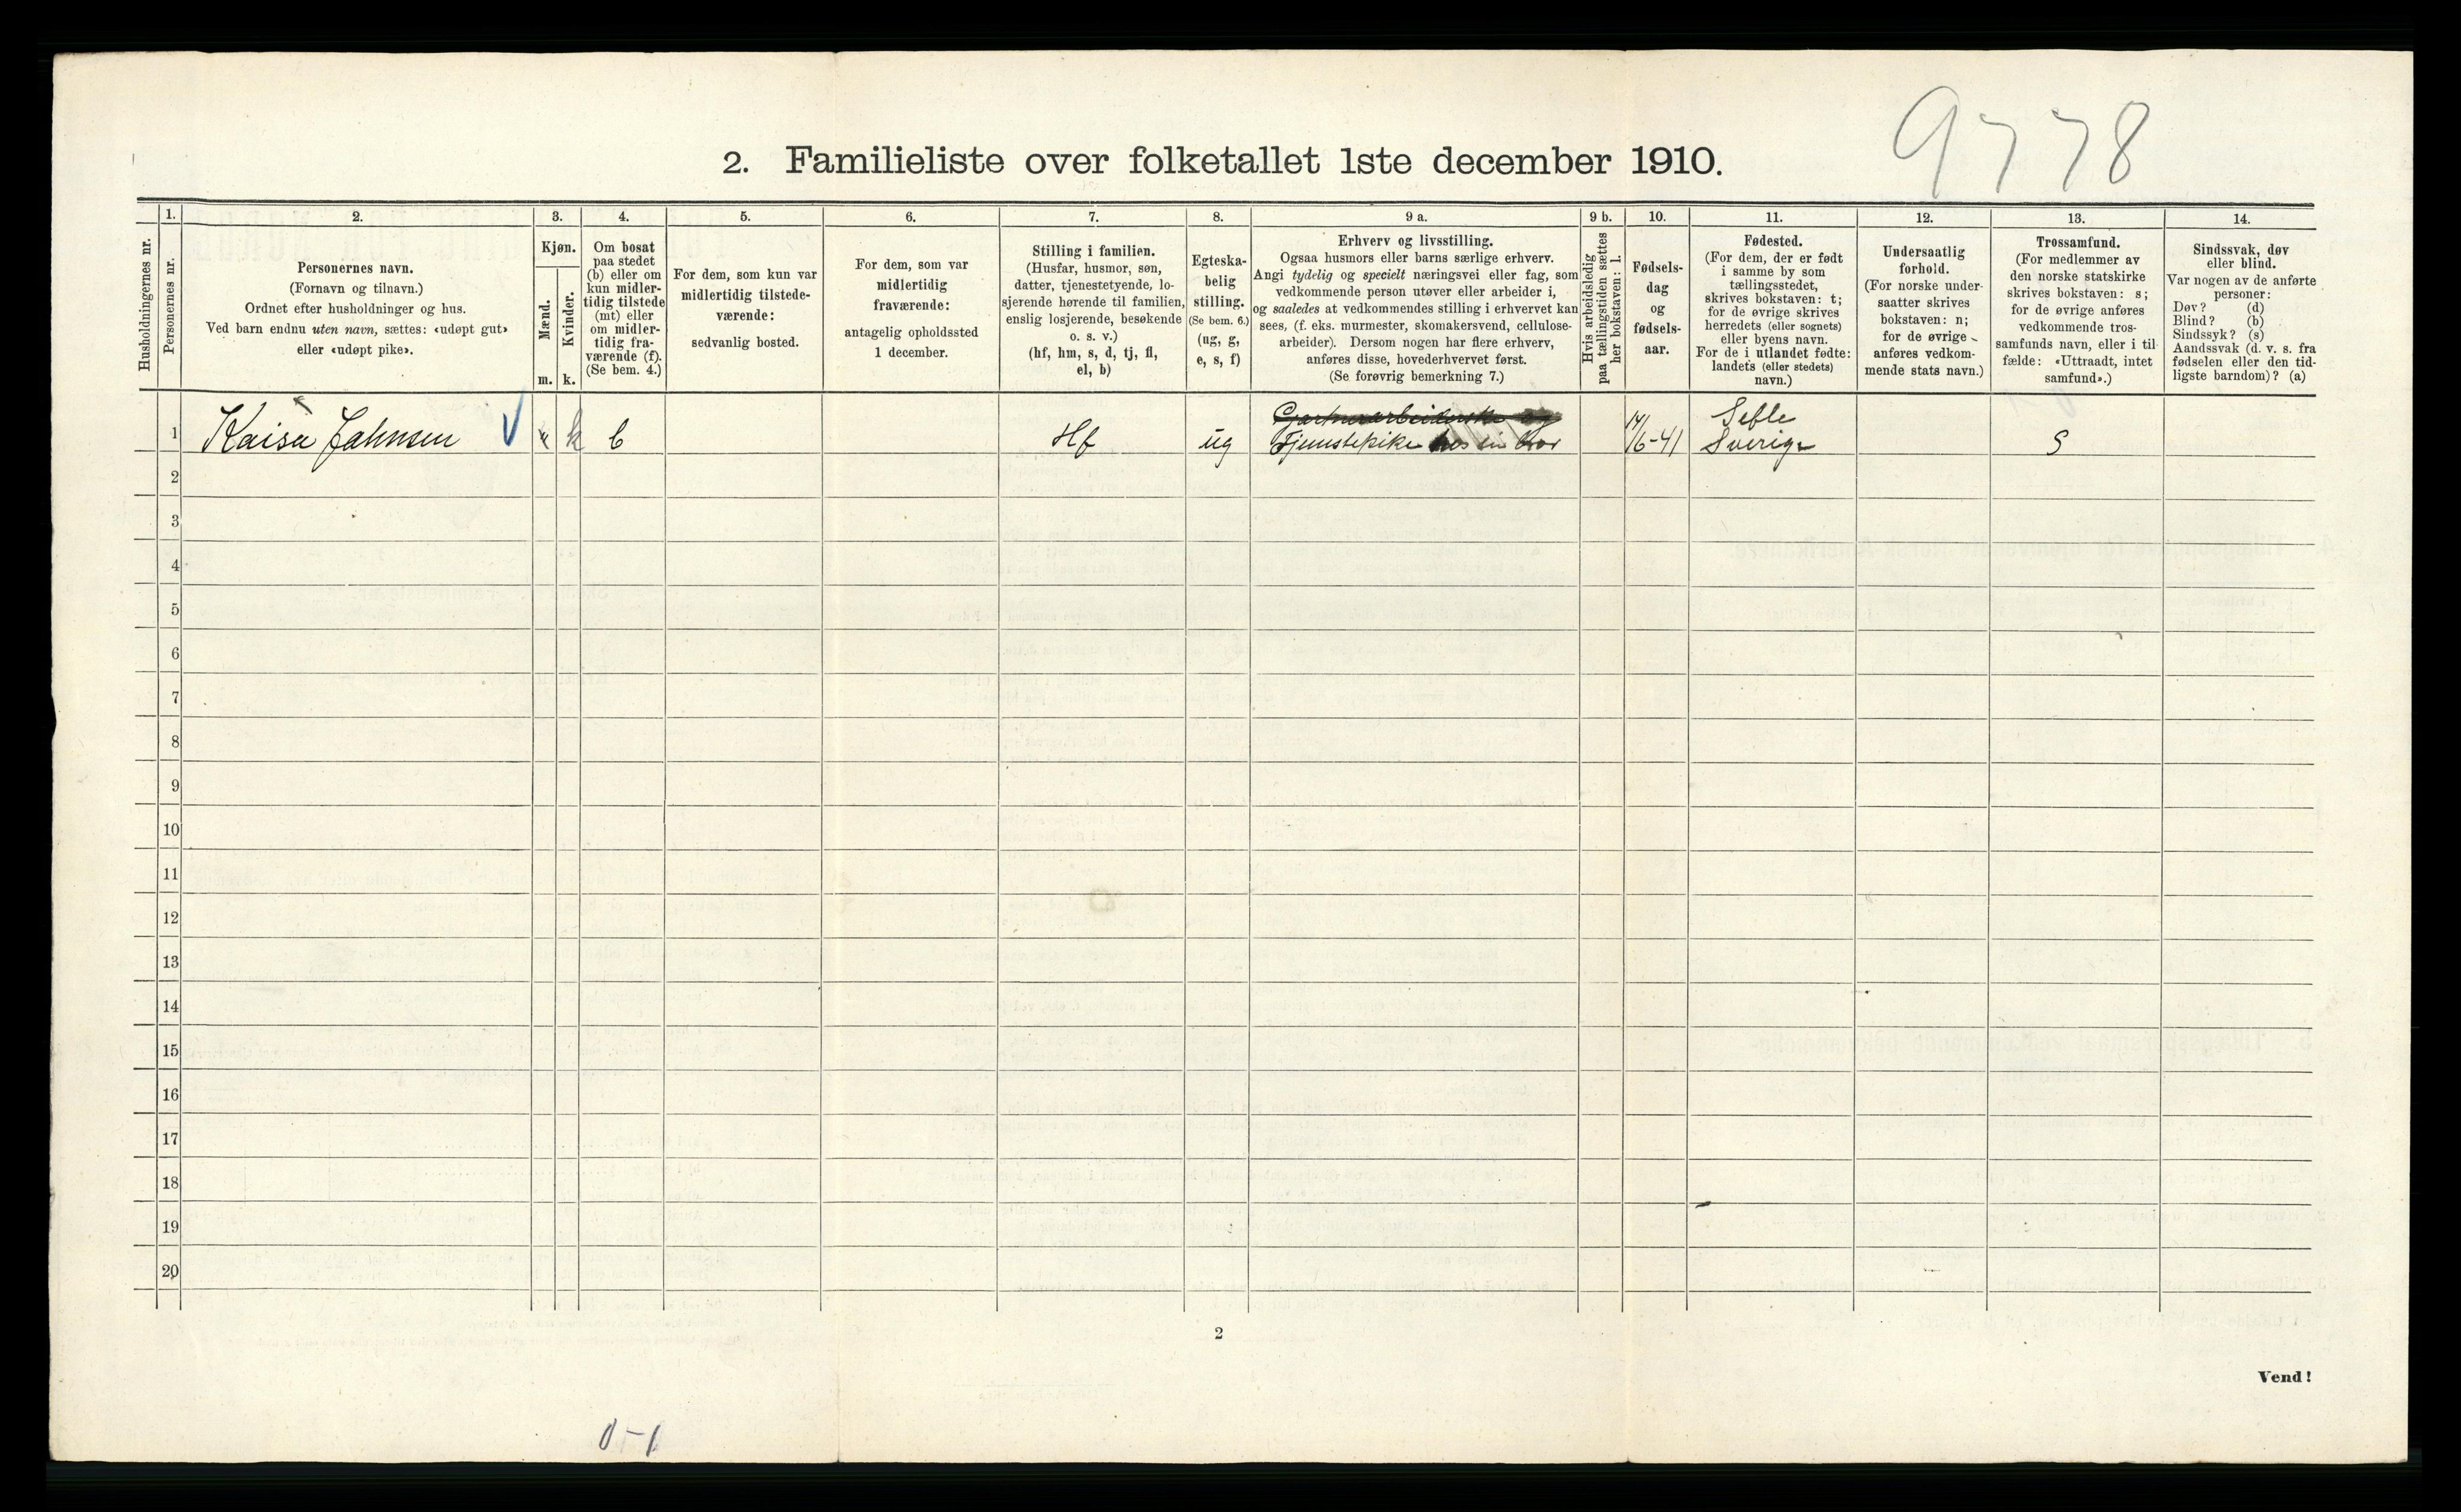 9778
2. Familieliste over folketallet 1ste december 1910.
Husholdningernes nr.
1.
Personernes nr.
2.
Personernes navn.
(Fornavn og tilnavn.)
Ordnet efter husholdninger og hus.
Ved barn endnu uten navn, sættes: «udøpt gut»
eller «udøpt pike».
3.
Kjøn.
Mænd.
m.
Kvinder.
k.
4.
Om bosat
paa stedet
(b) eller om
kun midler-
tidig tilstede
(mt) eller
om midler-
tidig fra-
værende (f).
(Se bem. 4.)
5.
For dem, som kun var
midlertidig tilstede-
værende:
sedvanlig bosted.
6.
For dem, som var
midlertidig
fraværende:
antagelig opholdssted
1 december.
7.
Stilling i familien.
(Husfar, husmor, søn,
datter, tjenestetyende, lo-
sjerende hørende til familien,
enslig losjerende, besøkende
o. s. v.)
(hf, hm, s, d, tj, fl,
el, b)
8.
Egteska-
belig
stilling.
(Se bem. 6.)
(ug, g,
e, s, f)
9 a.
Erhverv og livsstilling.
Ogsaa husmors eller barns særlige erhverv.
Angi tydelig og specielt næringsvei eller fag, som
vedkommende person utøver eller arbeider i,
og saaledes at vedkommendes stilling i erhvervet kan
sees, (f. eks. murmester, skomakersvend, cellulose-
arbeider). Dersom nogen har flere erhverv,
anføres disse, hovederhvervet først.
(Se forøvrig bemerkning 7.)
9 b.
Hvis arbeidsledig
paa tællingstiden sættes
her bokstaven: l.
10.
Fødsels-
dag
og
fødsels-
aar.
11.
Fødested.
(For dem, der er født
i samme by som
tællingsstedet,
skrives bokstaven: t;
for de øvrige skrives
herredets (eller sognets)
eller byens navn.
For de i utlandet fødte:
landets (eller stedets)
navn.)
12.
Undersaatlig
forhold.
(For norske under-
saatter skrives
bokstaven: n;
for de øvrige
anføres vedkom-
mende stats navn.)
13.
Trossamfund.
(For medlemmer av
den norske statskirke
skrives bokstaven: s;
for de øvrige anføres
vedkommende tros-
samfunds navn, eller i til-
fælde: «Uttraadt, intet
samfund».)
14.
Sindssvak, døv
eller blind.
Var nogen av de anførte
personer:
Døv? (d)
Blind? (b)
Sindssyk? (s)
Aandssvak (d. v. s. fra
fødselen eller den tid-
ligste barndom)? (a)
1 Kaisa Jahnsen k b Hf ug Tjenestepike 14/6-41 Sverige S
2
3
4
5
6
7
8
9
10
11
12
13
14
15
16
17
18
19
20
2
Vend!
0-1